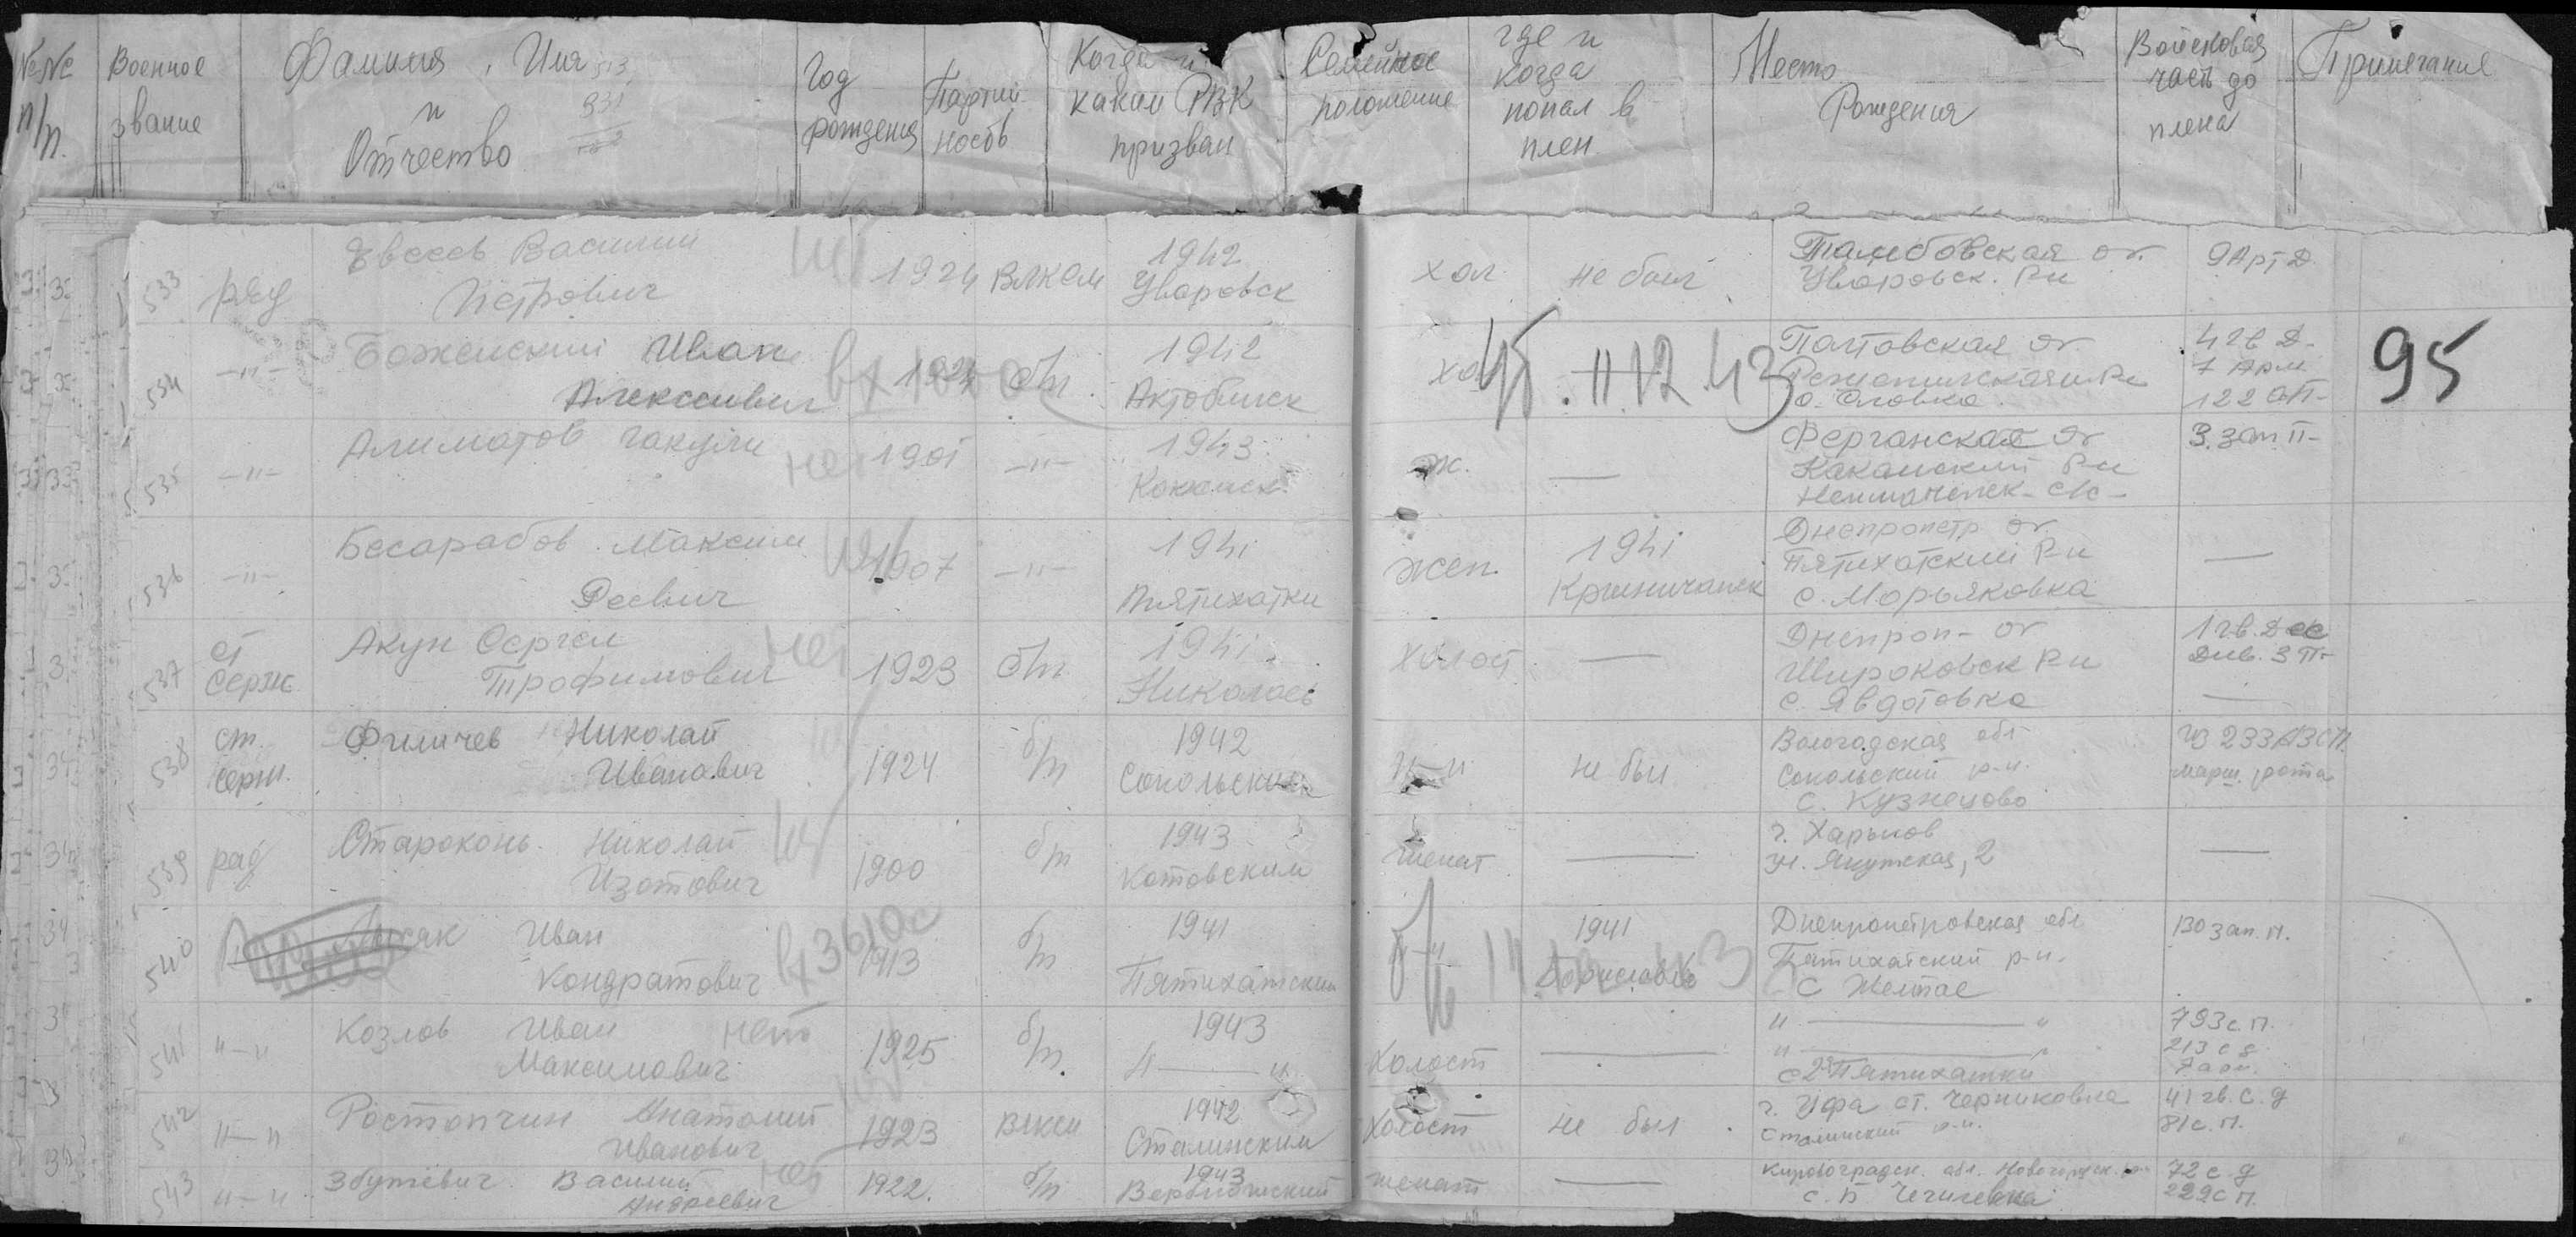 №№ п/п.
Военное звание
Фамилия, Имя и Отчество
Год рождения
Партийность
Когда и каким РВК призван
Семейное положение
где и когда попал в плен
Место Рождения
Войсковая часть до плена
Примечание
533 ряд Евсеев Василий 1924 Влксм 1942 хол не был Тамбовская ог. 9 Арт Д
Петрович Уваровск Уваровск. Рн
534 -"- Боженский Иван 1924 б/п 1942 хол -"- 4 гв Д-
Алексеевич Актобинск 7 Арм
122 АП-
45. 11.12.43
95
535 -"- Алиматов 1901 -"- 1943 ж. — Ферганская ог 3. зап п-
536 -"- Бесарабов Максим 1907 -"- 1941 жен. 1941 Днепропетр ог —
Пятихатки Пятихатский Рн
с. Морьяковка
537 ст Акун Сергей 1923 б/п 1941 Холост — Днепроп- ог
серж Трофимович Николаев Широковск Рн
с. Явдотовка
538 ст. Филичев Николай 1924 б/п 1942 "-" не был Вологодская обл Из 233 АЗСП
серж. Иванович Сокольским Сокольский р-н. марш. рота
с. Кузнецово
539 ряд Староконь Николай 1900 б/п 1943 женат — г. Харьков —
Изотович Котовским ул. Якутская, 2
540 Иван 1913 б/п 1941 "-" 1941 Днепропетровская обл 130 зап. п.
Кондратович Пятихатским Пятихатский р-н.
с Желтое
541 "-" Козлов Иван нет 1925 б/п. 1943 Холост — "—" 793 с. п.
Максимович "—" "—" 213 с д
с 2 Пятихатки 7 арм.
542 "-" Ростопчин Анатолий 1923 влксм 1942 Холост не был г. Уфа ст. Черниковка 41 гв. с. д
Иванович Сталинским Сталинский р-н. 81 с. п.
543 "-" Збутевич Василий нет 1922. б/п 1943 женат — Кировоградск. обл. 72 с д
Андреевич 229 с п.